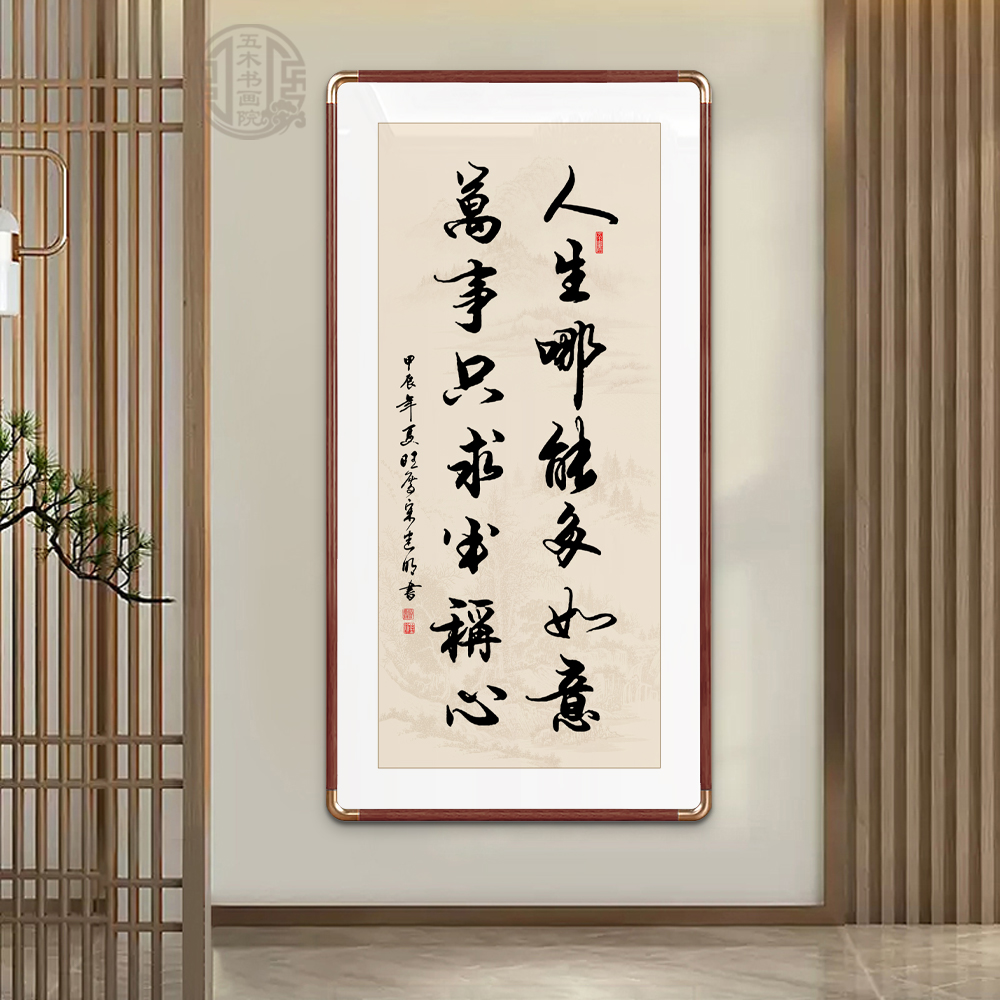 人生哪能多如意
萬事只求半稱心
甲辰年夏旺厝宋建明書
五木书画院